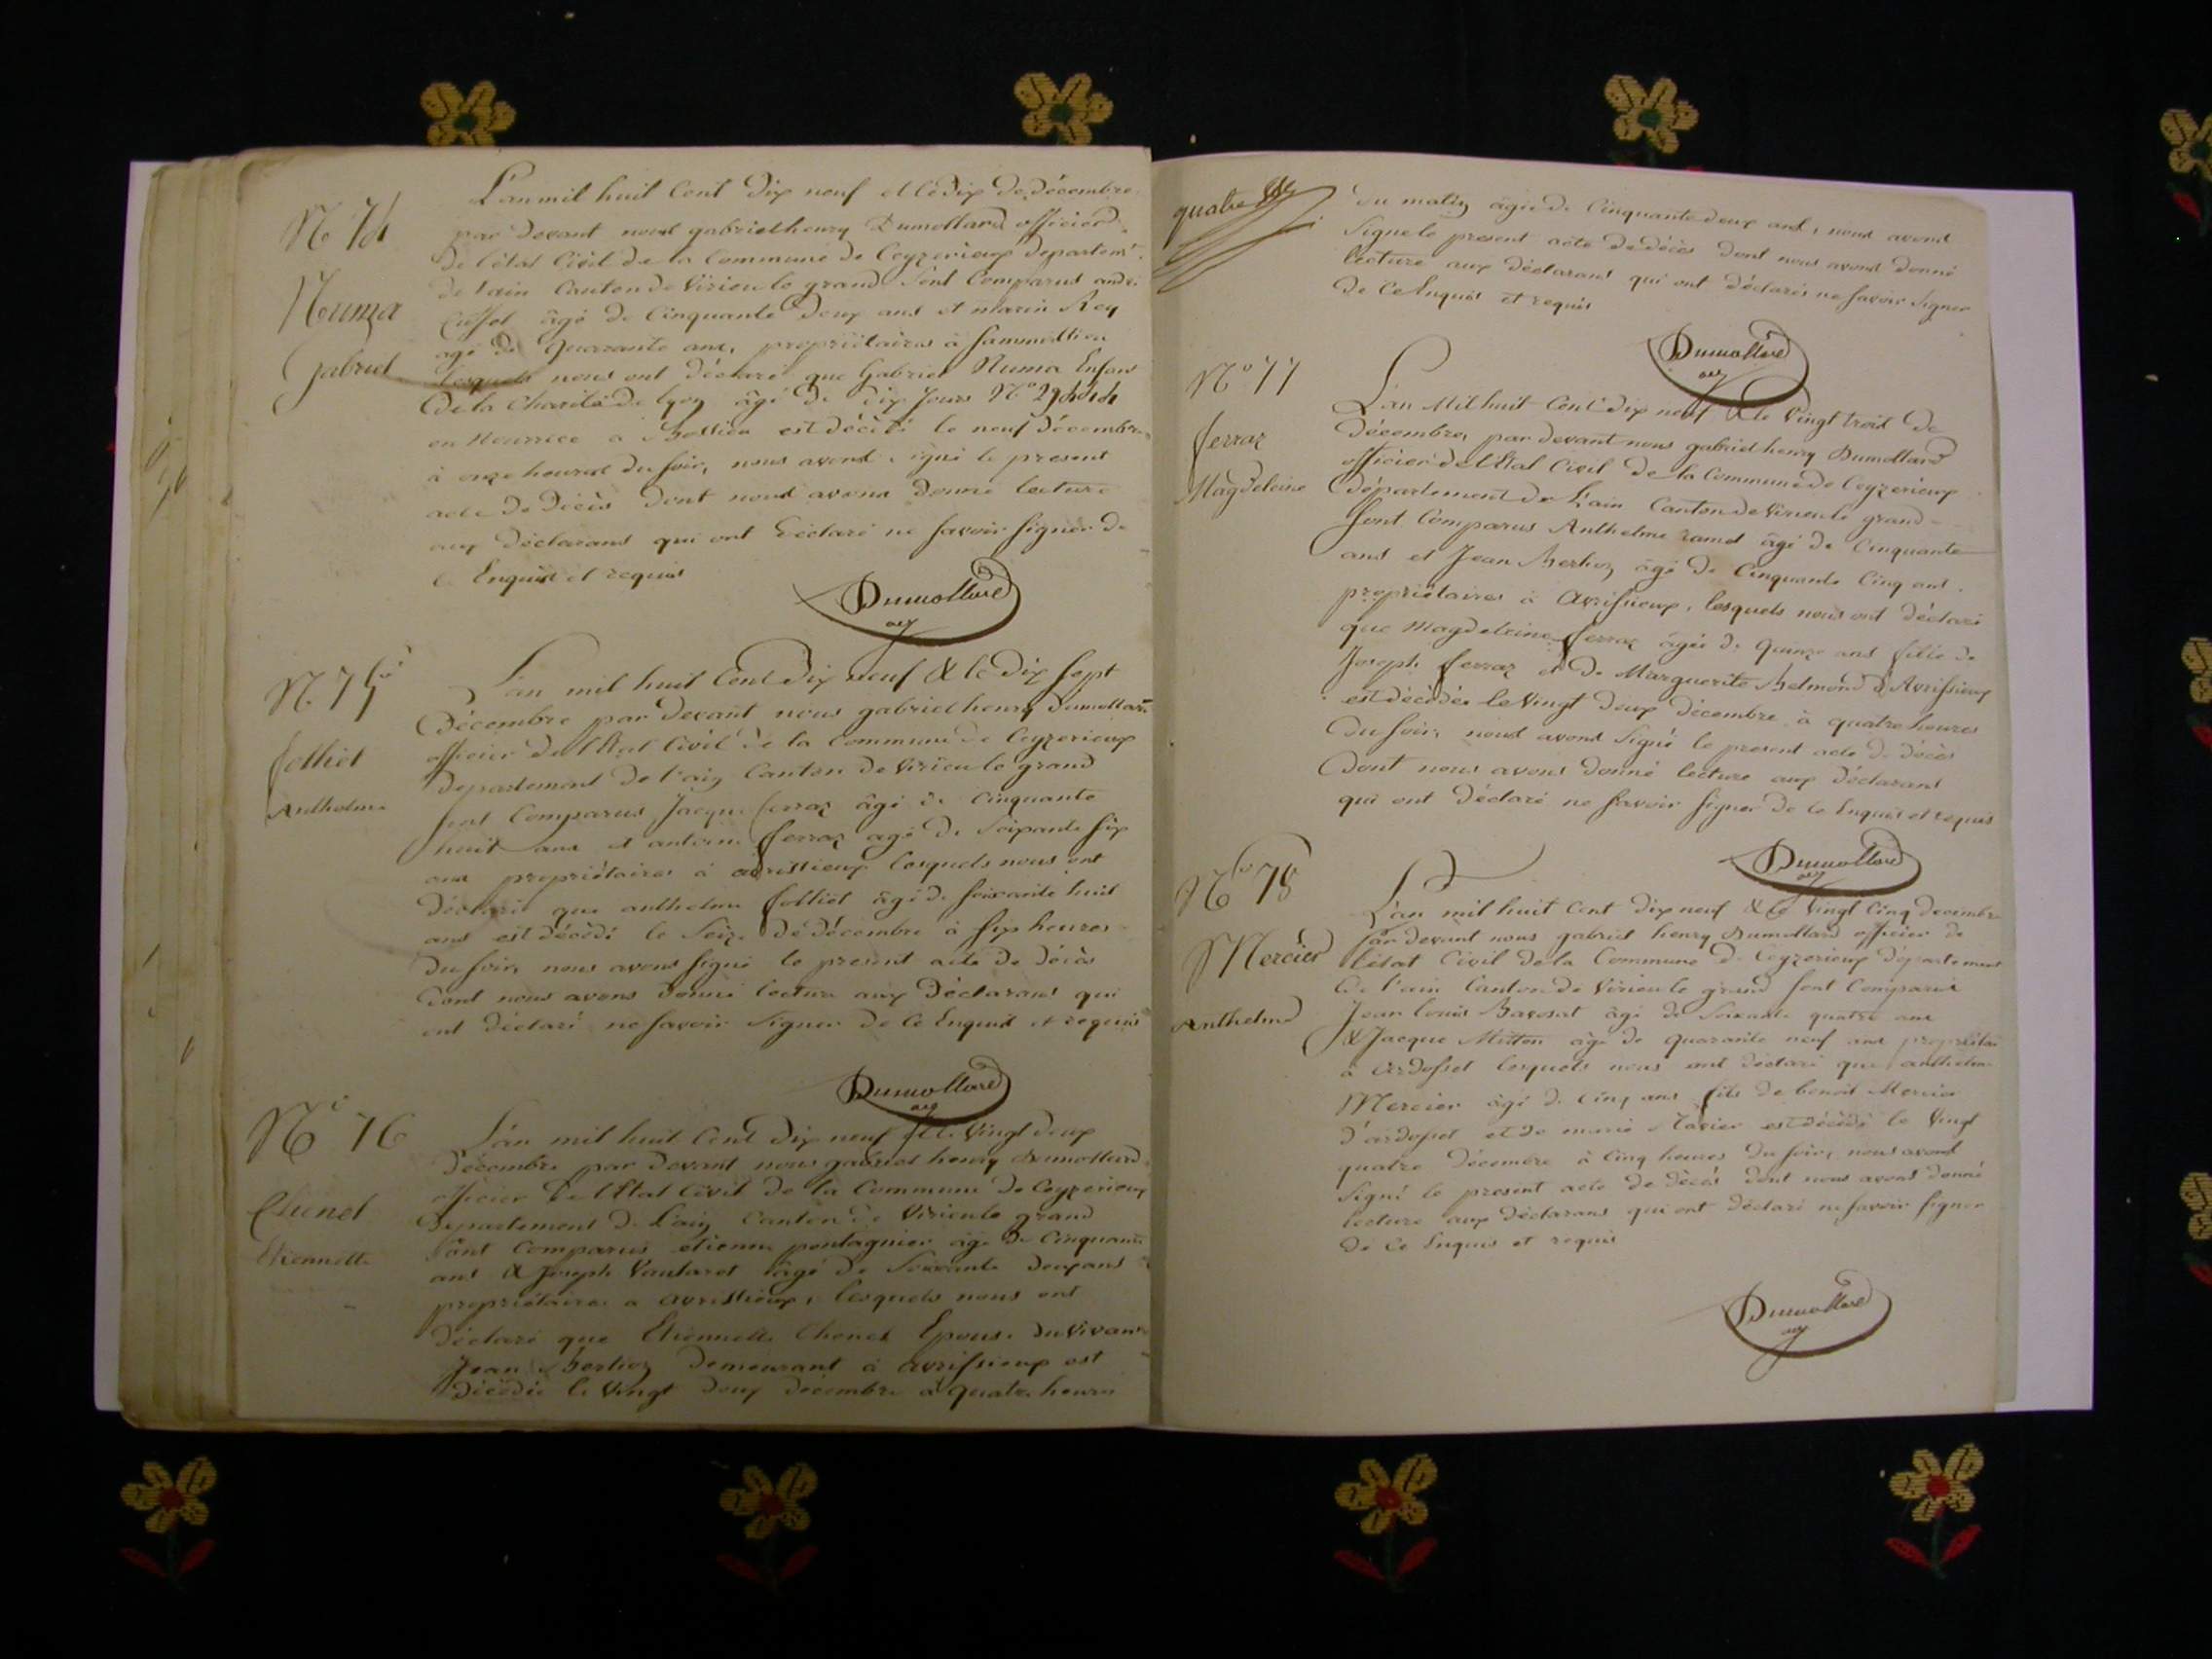 N° 74
Numa
Gabriel
L'an mil huit Cent Dix neuf et le Dix de décembre
par devant nous gabriel henry Dumollard officier
De l'état Civil de la Commune de Ceyzerieux departemt
de l'ain Canton de Virieu le grand Sont Comparus andré
âgé de Cinquante Deux ans et marin Rey
agé de Quarante ans, propriétaires à
lesquels nous ont déclaré que Gabriel Numa Enfant
De la Charité de lyon âgé de dix Jours N° 29444
en Nourrice a est décédé le neuf décembre
à onze heures du soir, nous avons signé le present
acte de Décès Dont nous avons Donné lecture
aux déclarans qui ont déclaré ne savoir signer de
ce Enquis et requis
Dumollard
N° 75
Jolliet
Anthelme
L'an mil huit Cent Dix neuf & le Dix Sept
Décembre par Devant nous gabriel henry Dumollard
officier de l'Etat Civil de la commune de Ceyzerieux
Departement de l'ain Canton de Virieu le grand
sont Comparus Jacque ferraz âgé de Cinquante
huit ans et antoine ferraz agé de Soixante six
ans propriétaires à avrissieux lesquels nous ont
déclaré que anthelme Jolliet âgé de soixante huit
ans est décédé le Seize de décembre à six heures
du soir, nous avons signé le present acte de décès
Dont nous avons donné lecture aux Déclarans qui
ont déclaré ne savoir signer de ce Enquis et requis
Dumollard
N° 76
Chenet
Etiennette
L'an mil huit Cent Dix neuf & le Vingt deux
Décembre par Devant nous gabriel henry Dumollard
officier de l'Etat Civil de la Commune de Ceyzerieux
Departement de l'ain Canton de Virieu le grand
sont Comparus etienne pontagnier âgé de Cinquante
ans & Joseph Vautaret âgé de Soixante deux ans
propriétaires a avrissieux, lesquels nous ont
déclaré que Etiennette Chenet Epouse du vivant
Jean Berlioz Demeurant à avrissieux est
décédée le Vingt deux décembre à quatre heures
quatre
du matin âgée de Cinquante deux ans, nous avons
Signé le present acte de décès dont nous avons donné
lecture aux déclarans qui ont déclarés ne savoir Signer
de Ce Enquis et requis
Dumollard
N° 77
ferraz
Magdeleine
L'an Mil huit Cent Dix neuf & le Vingt trois de
Décembre, par devant nous gabriel henry Dumollard
officier de l'Etat Civil de la Commune de Ceyzerieux
Département de L'ain Canton de Virieu le grand
sont Comparus Anthelme ramel âgé de Cinquante
ans et Jean Berlioz âgé de Cinquante Cinq ans
propriétaires à Avrissieux, lesquels nous ont déclaré
que Magdeleine ferraz âgée de Quinze ans fille de
Joseph ferraz et de Marguerite Belmond d'Avrissieux
est décédée le Vingt deux Décembre à quatre heures
du soir, nous avons Signé le present acte de décès
Dont nous avons Donné lecture aux déclarans
qui ont déclaré ne savoir signer de ce Enquis et requis
Dumollard
N° 78
Mercier
Anthelme
L'an mil huit Cent Dix neuf & le Vingt Cinq decembre
par devant nous gabriel henry Dumollard officier de
l'état Civil de la Commune de Ceyzerieux departement
de l'ain Canton de Virieu le grand sont Comparus
Jean Louis Bavosat âgé de Soixante quatre ans
& Jacque Mitton âgé de quarante neuf ans
à ardosset lesquels nous ont déclaré que anthelme
Mercier âgé de cinq ans fils de benoit Mercier
d'ardosset et de marie Tavier est décédé le Vingt
quatre Décembre à Cinq heures du soir, nous avons
Signé le present acte de décès dont nous avons donné
lecture aux déclarans qui ont déclaré ne savoir signer
de ce Enquis et requis
Dumollard